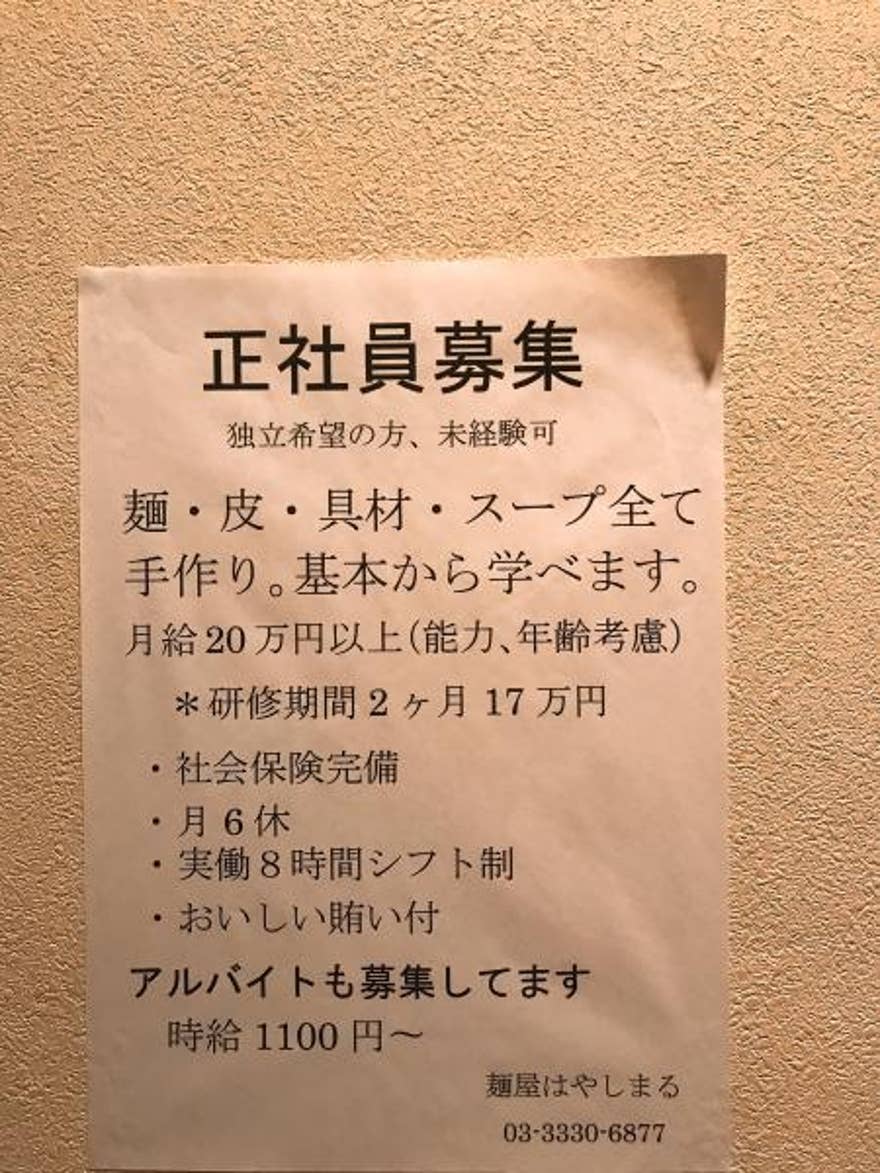 正社員募集
独立希望の方、未経験可
麺・皮・具材・スープ全て
手作り。基本から学べます。
月給20万円以上(能力、年齢考慮)
＊研修期間2ヶ月17万円
・社会保険完備
・月6休
・実働8時間シフト制
・おいしい賄い付
アルバイトも募集してます
時給1100円～
麺屋はやしまる
03-3330-6877